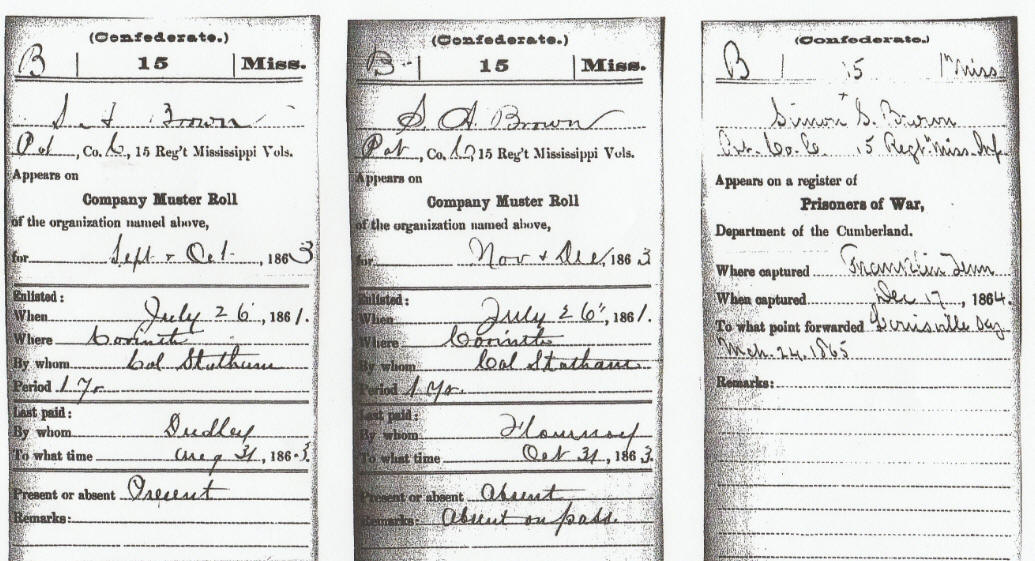 (Confederate.)
B | 15 | Miss.
S. A Brown
Pvt, Co. C, 15 Reg't Mississippi Vols.
Appears on
Company Muster Roll
of the organization named above,
for Sept & Oct, 1863
Enlisted:
When July 26, 1861.
Where Corinth
By whom Col Statham
Period 1 Yr
Last paid:
By whom Dudley
To what time Aug 31, 1863.
Present or absent Present
Remarks:
(Confederate.)
B | 15 | Miss.
S. A. Brown
Pvt, Co. C, 15 Reg't Mississippi Vols.
Appears on
Company Muster Roll
of the organization named above,
for Nov & Dec, 1863
Enlisted:
When July 26", 1861.
Where Corinth
By whom Col Statham
Period 1 Yr.
Last paid:
By whom Flournoy
To what time Oct 31, 1863.
Present or absent Absent
Remarks: Absent on pass.
(Confederate.)
B | 15 | Miss
Simon S. Brown
Pvt. Co. C. 15 Regt. Miss. Inf.
Appears on a register of
Prisoners of War,
Department of the Cumberland.
Where captured Franklin Tenn
When captured Dec 17, 1864.
To what point forwarded Louisville Ky.
Mch. 24, 1865
Remarks: